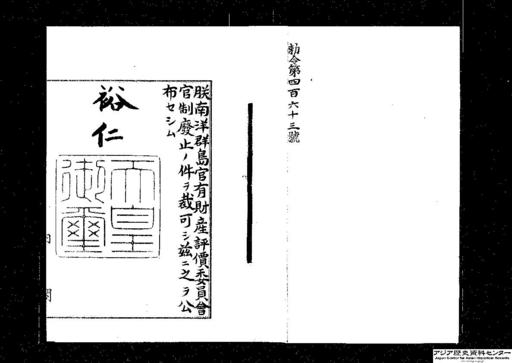 勅令第四百六十三號
朕南洋群島官有財産評價委員會
官制廢止ノ件ヲ裁可シ茲ニ之ヲ公
布セシム
裕仁
天皇
御璽
内
閣
アジア歴史資料センター
Japan Center for Asian Historical Records